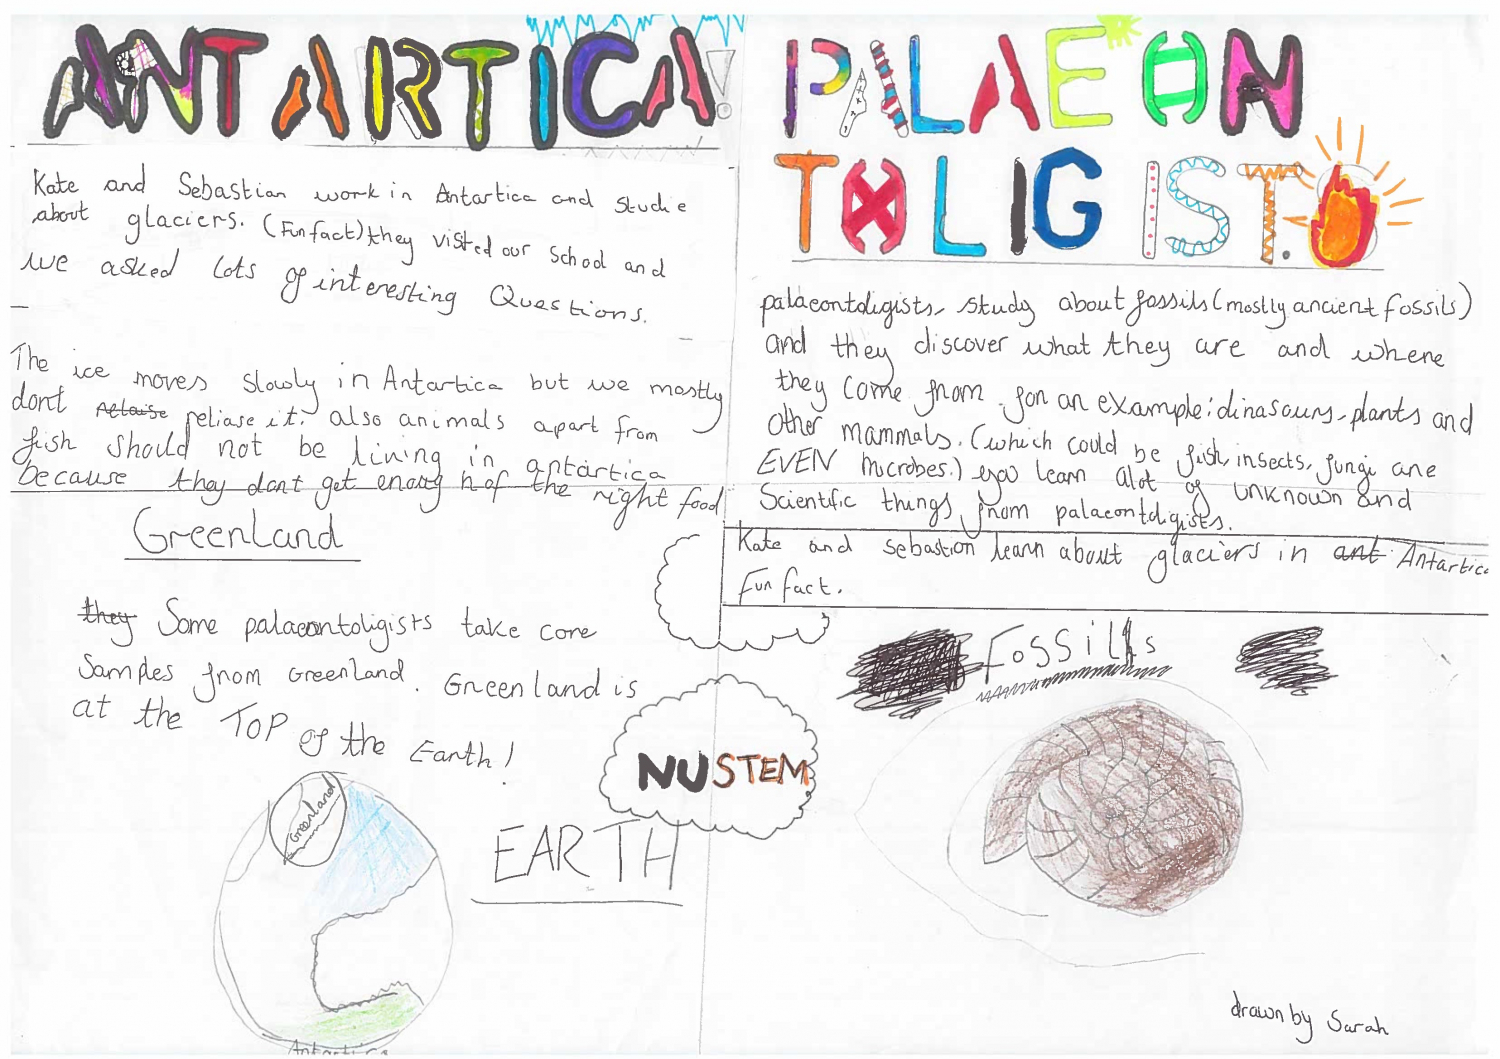 ANTARTICA!
Kate and Sebastian work in Antartica and studie
about glaciers. (Fun fact) they visted our school and
we asked lots of interesting Questions.
The ice moves slowly in Antartica but we mostly
dont reliase it. also animals apart from
fish should not be lining in antartica
because they dont get enoug h of the right food
Greenland
they Some palaeontoligists take core
samples from Greenland. Greenland is
at the TOP of the Earth!
Greenland
Antartica
EARTH
NUSTEM
PALAEON
TOLIGIST.
palaeontoligists, study about fossils (mostly ancient fossils)
and they discover what they are and where
they come from. for an example: dinasours, plants and
other mammals. (which could be fish, insects, fungi are
EVEN microbes.) you learn alot of unknown and
Scientific things from palaeontoligists.
Kate and Sebastion learn about glaciers in ant Antartica
Fun fact.
Fossills
drawn by Sarah